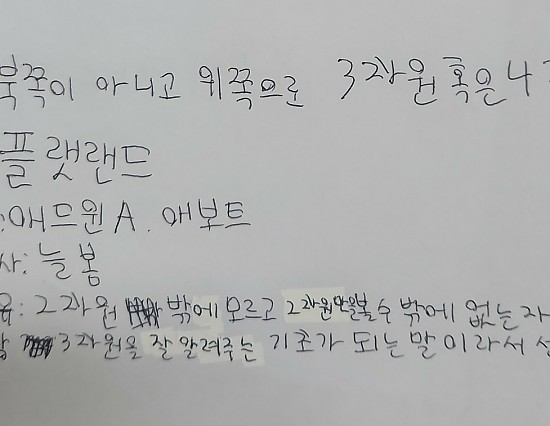 북쪽이 아니고 위쪽으로 3차원 혹은 4
플랫랜드
:애드윈 A. 애보트
사: 늘봄
: 2차원 밖에 모르고 2차원만을볼수 밖에 없는 자
3차원을 잘 알려주는 기초가 되는 말이라서